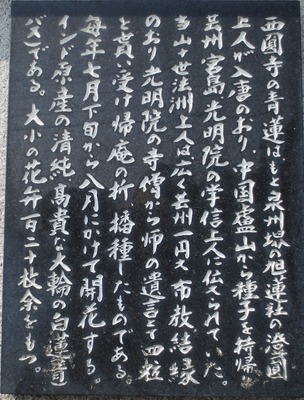 西圓寺の青蓮は、もと泉州堺の旭蓮社の澄圓
上人が入唐のおり、中国廬山から種子を持帰り
芸州宮島光明院の学信上人に伝えられていた。
当山十世法洲上人は広く芸州一円へ布教結縁
のおり光明院の寺僧から師の遺言とて四粒
を貰い受け帰庵の折播種したものである。
毎年七月下旬から八月にかけて開花する。
インド原産の清純高貴な大輪の白蓮青
バスである。大小の花弁一百二十枚余をもつ。